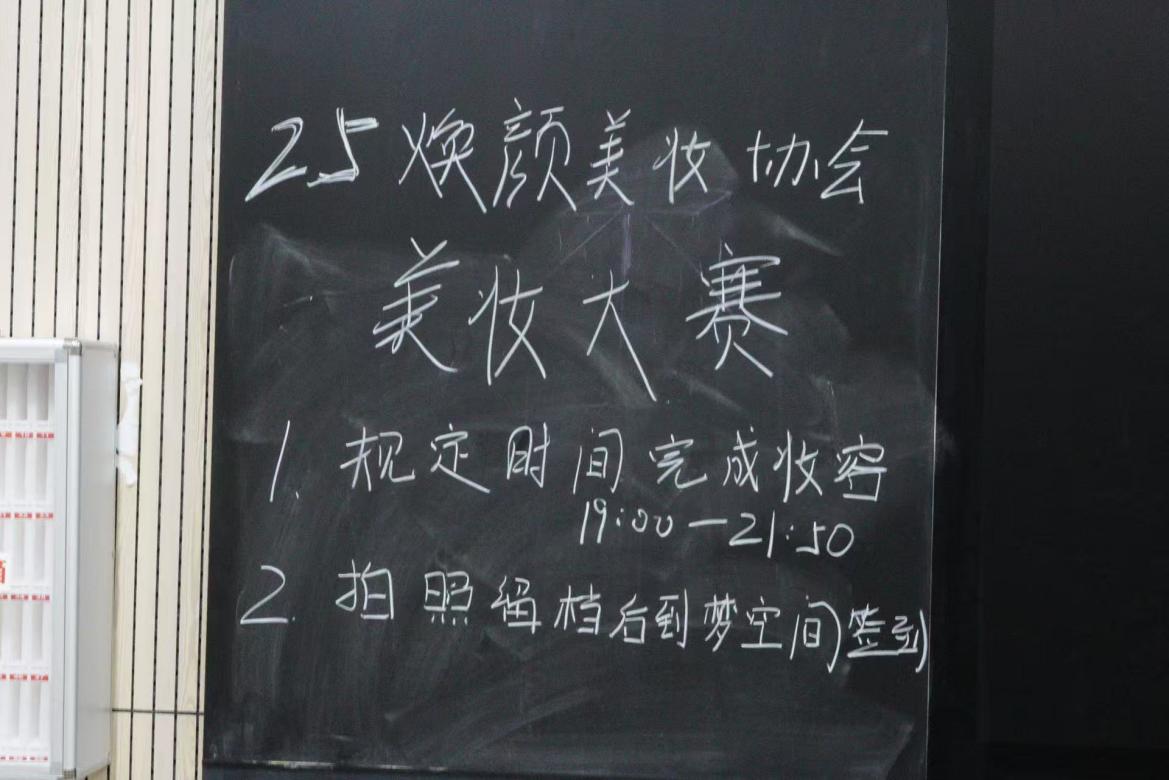 25焕颜美妆协会
美妆大赛
1. 规定时间完成妆容
19:00—21:50
2. 拍照留档后到梦空间签到